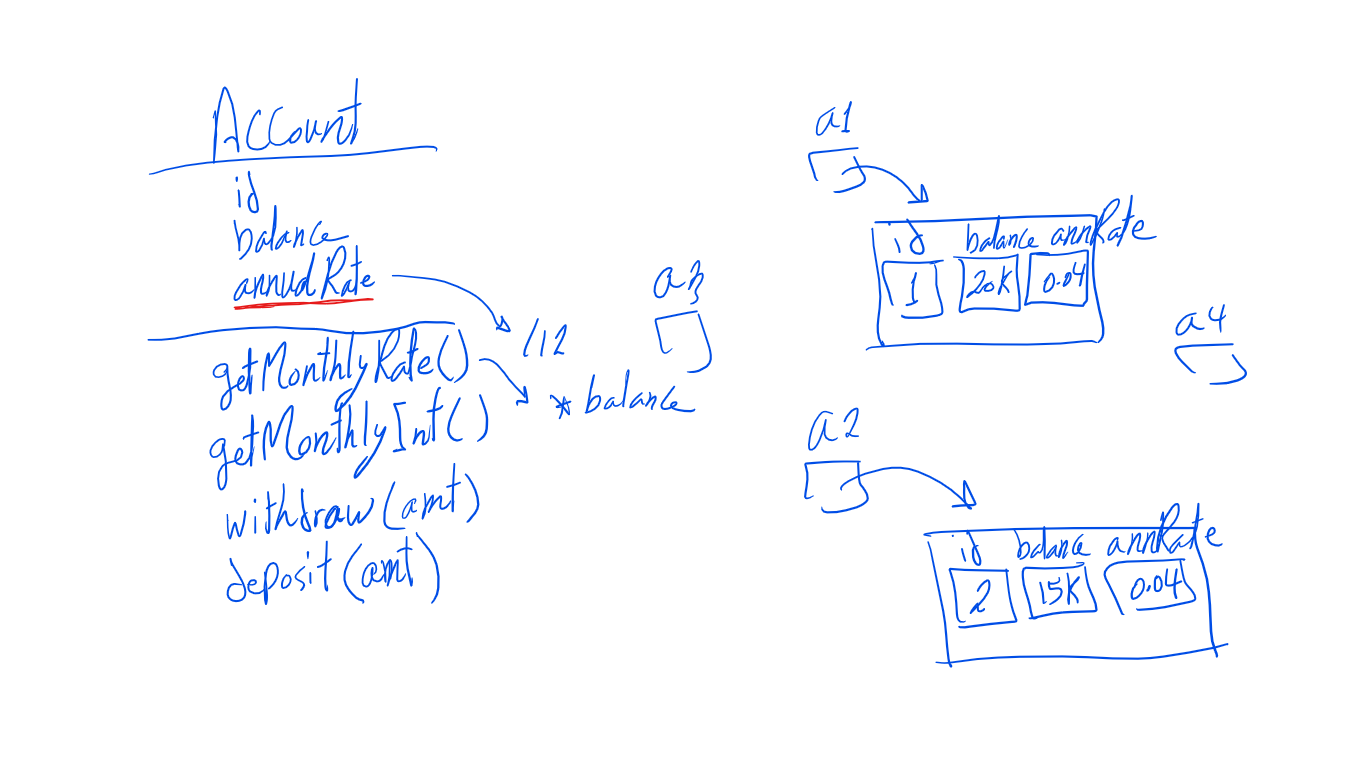 Account
id
balance
annualRate
/12
getMonthlyRate()
* balance
getMonthlyInt()
withdraw(amt)
deposit(amt)
a1
id balance annRate
1 20K 0.04
a3
a4
a2
id balance annRate
2 15K 0.04